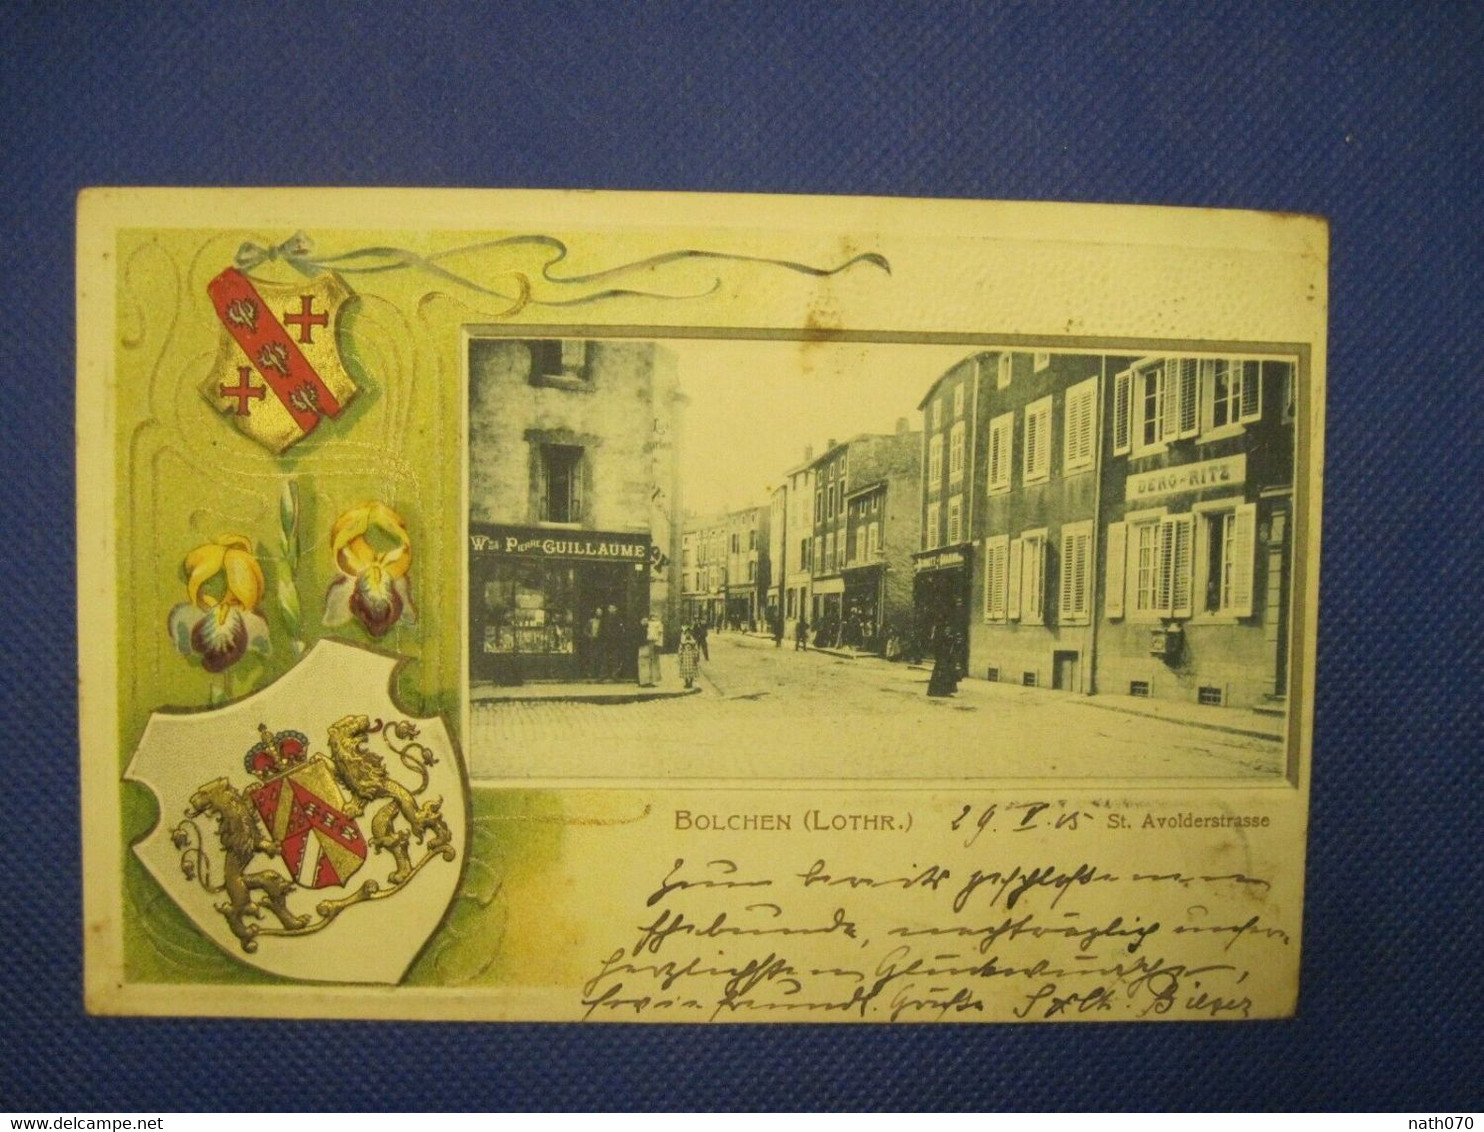 Wwe Pierre Guillaume
DERO-RITZ
Bolchen (Lothr.) 29. V. 05 St. Avolderstrasse
Zum bereits geschlossenen
Ehebunde, nachträglich unsere
herzlichsten Glückwünsche,
sowie freundl. Grüße
delcampe.net
nath070